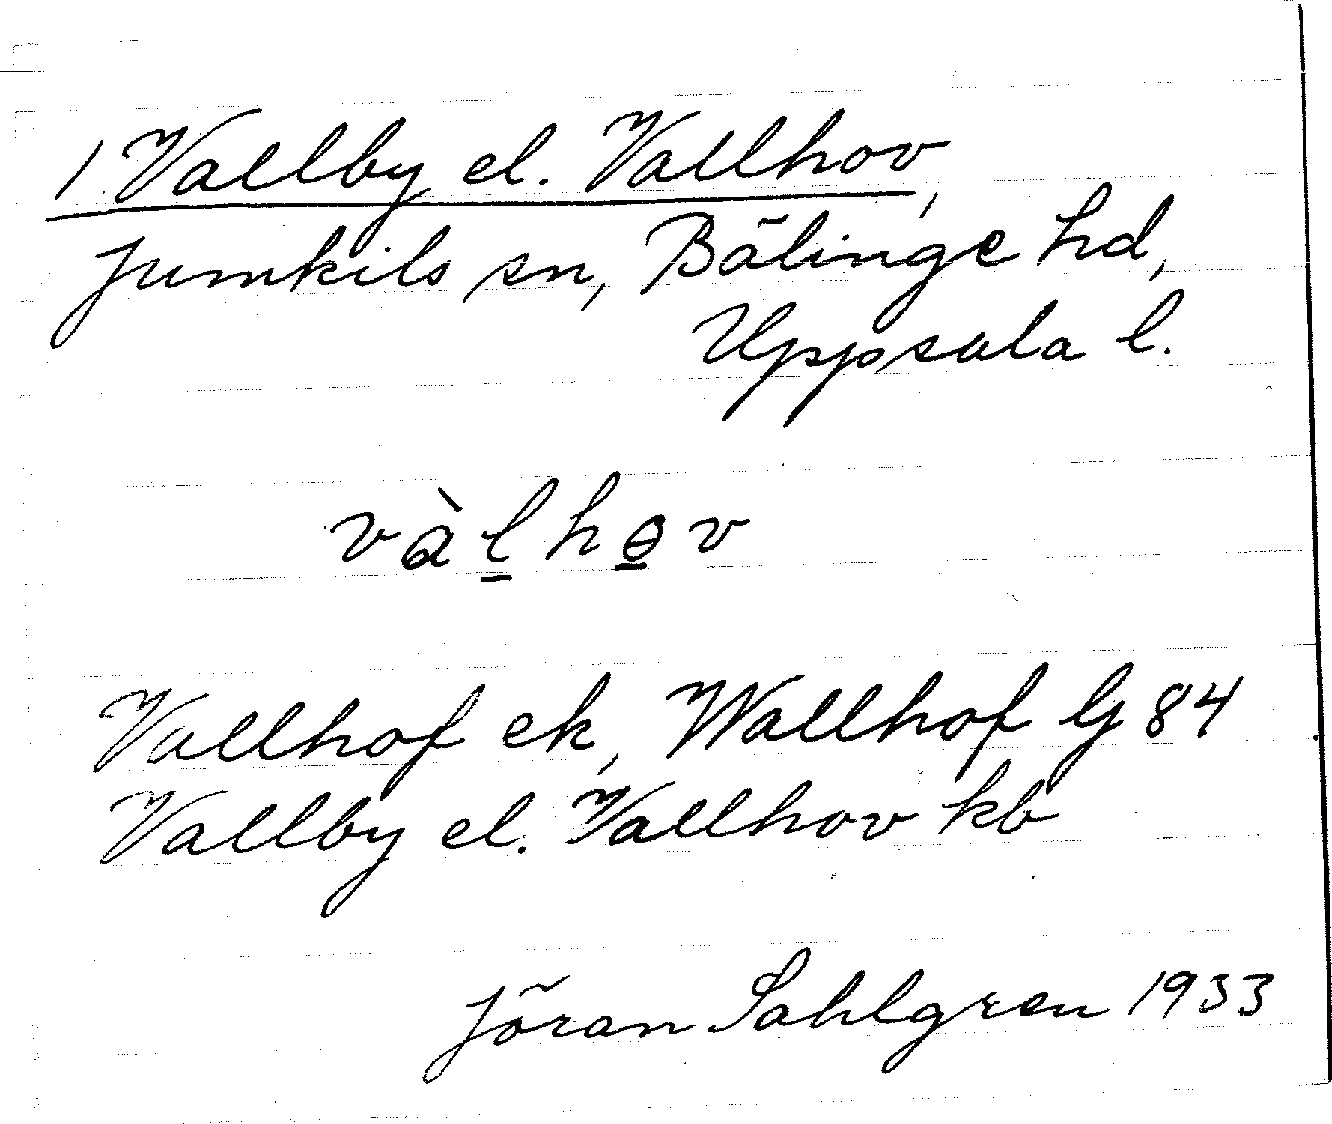 1 Vallby el. Vallhov,
Jumkils sn, Bälinge hd,
Uppsala l.
vàl̲hɵ̲v
Vallhof ek, Wallhof G 84
Vallby el. Vallhov kb
Jöran Sahlgren 1933